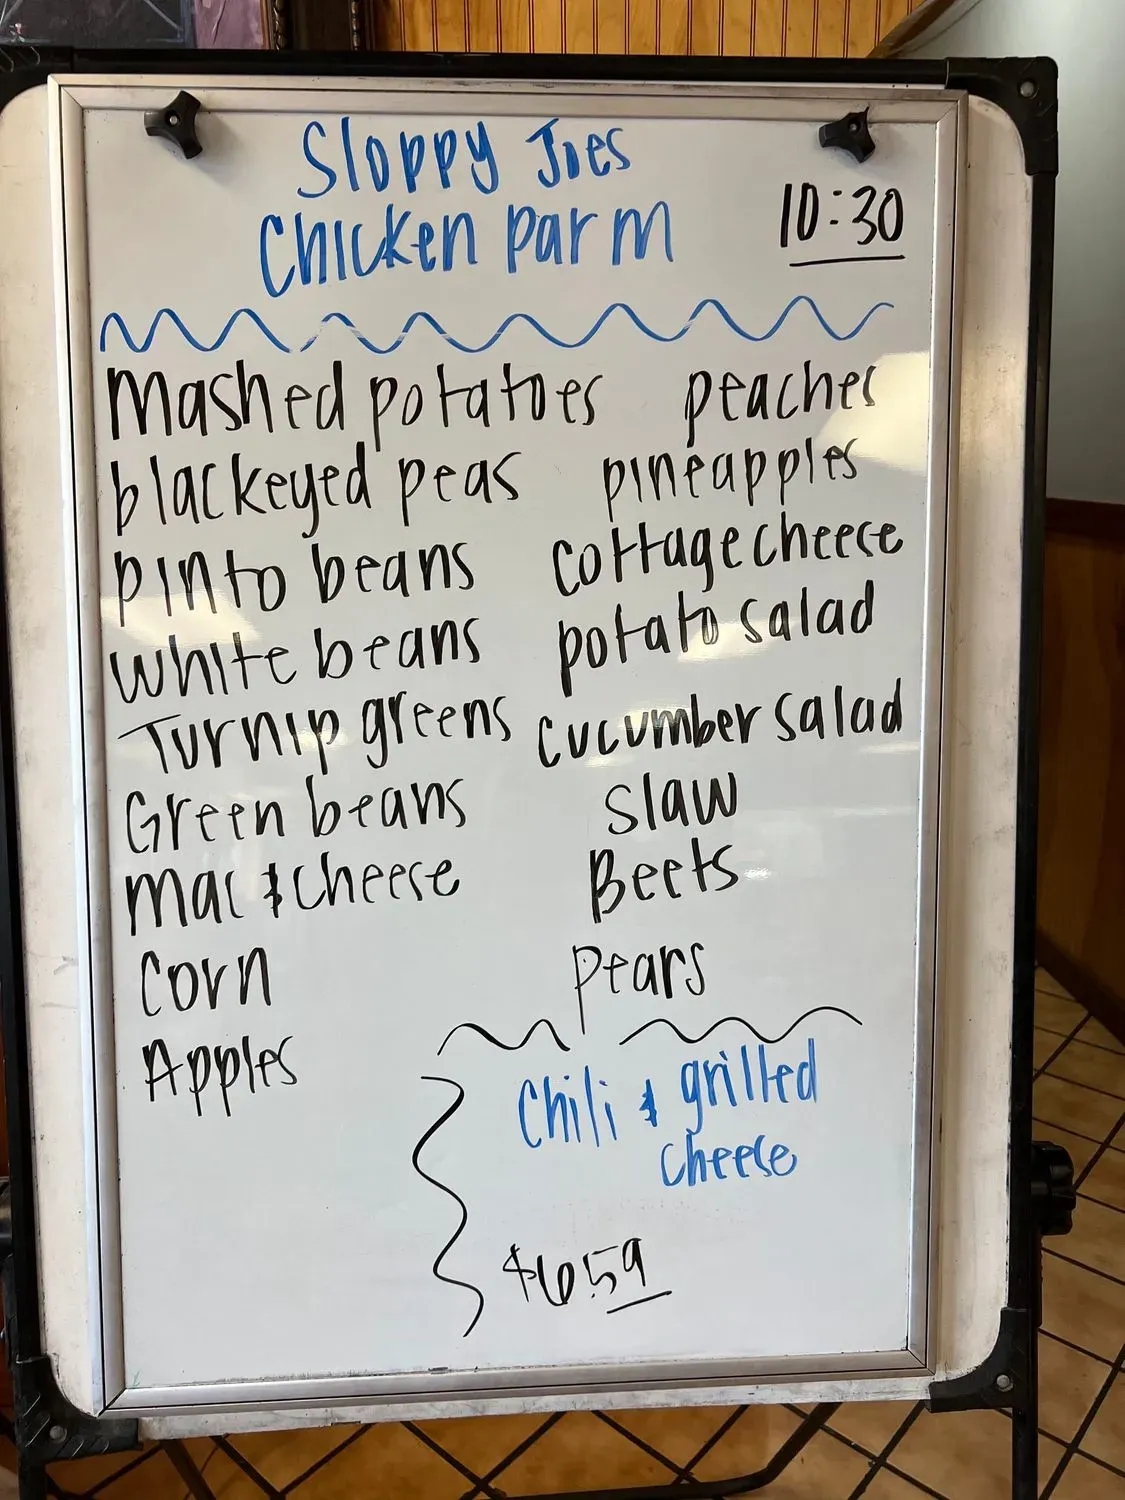 Sloppy Joes
Chicken Parm
10:30
Mashed potatoes
blackeyed peas
pinto beans
white beans
Turnip greens
Green beans
Mac & cheese
Corn
Apples
peaches
pineapples
cottage cheese
potato salad
cucumber salad
Slaw
Beets
pears
Chili & grilled
cheese
$6.59